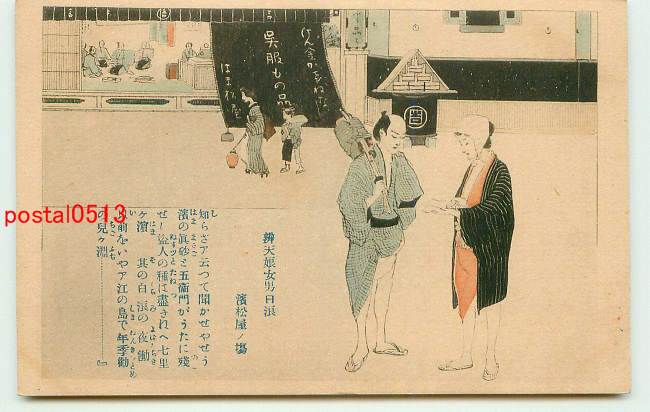 けんきんかけねなし
呉服もの品
はまつ屋
辨天娘女男日浪
濱松屋ノ塲
知らざア云つて聞かせやせう
濱の眞砂と五衞門がうたに殘
せし盜人の種は盡きねへ七里
ヶ濱 其の白浪の夜働
以前をいやア江の島で年季勤
の兒ヶ淵………』
postal0513